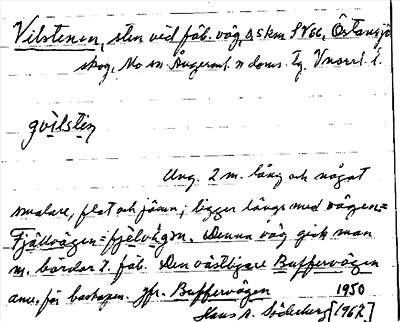 Vilstenen, sten vid fäb. väg, 0,5 km SV 66, Östansjö
skog, Mo sn Ångerml. n doms. tg. Vnorrl. l.
gvilstin
Ung. 2 m. lång och något
smalare, flat och jämn; ligger längs med vägen =
Fjällvägen = fjelvägen. Denna väg gick man
m. bördor t. fäb. Den västligare Buffervägen
anv. för boskapen. Jfr. Buffervägen 1950
Hans A. Söderberg [1962]